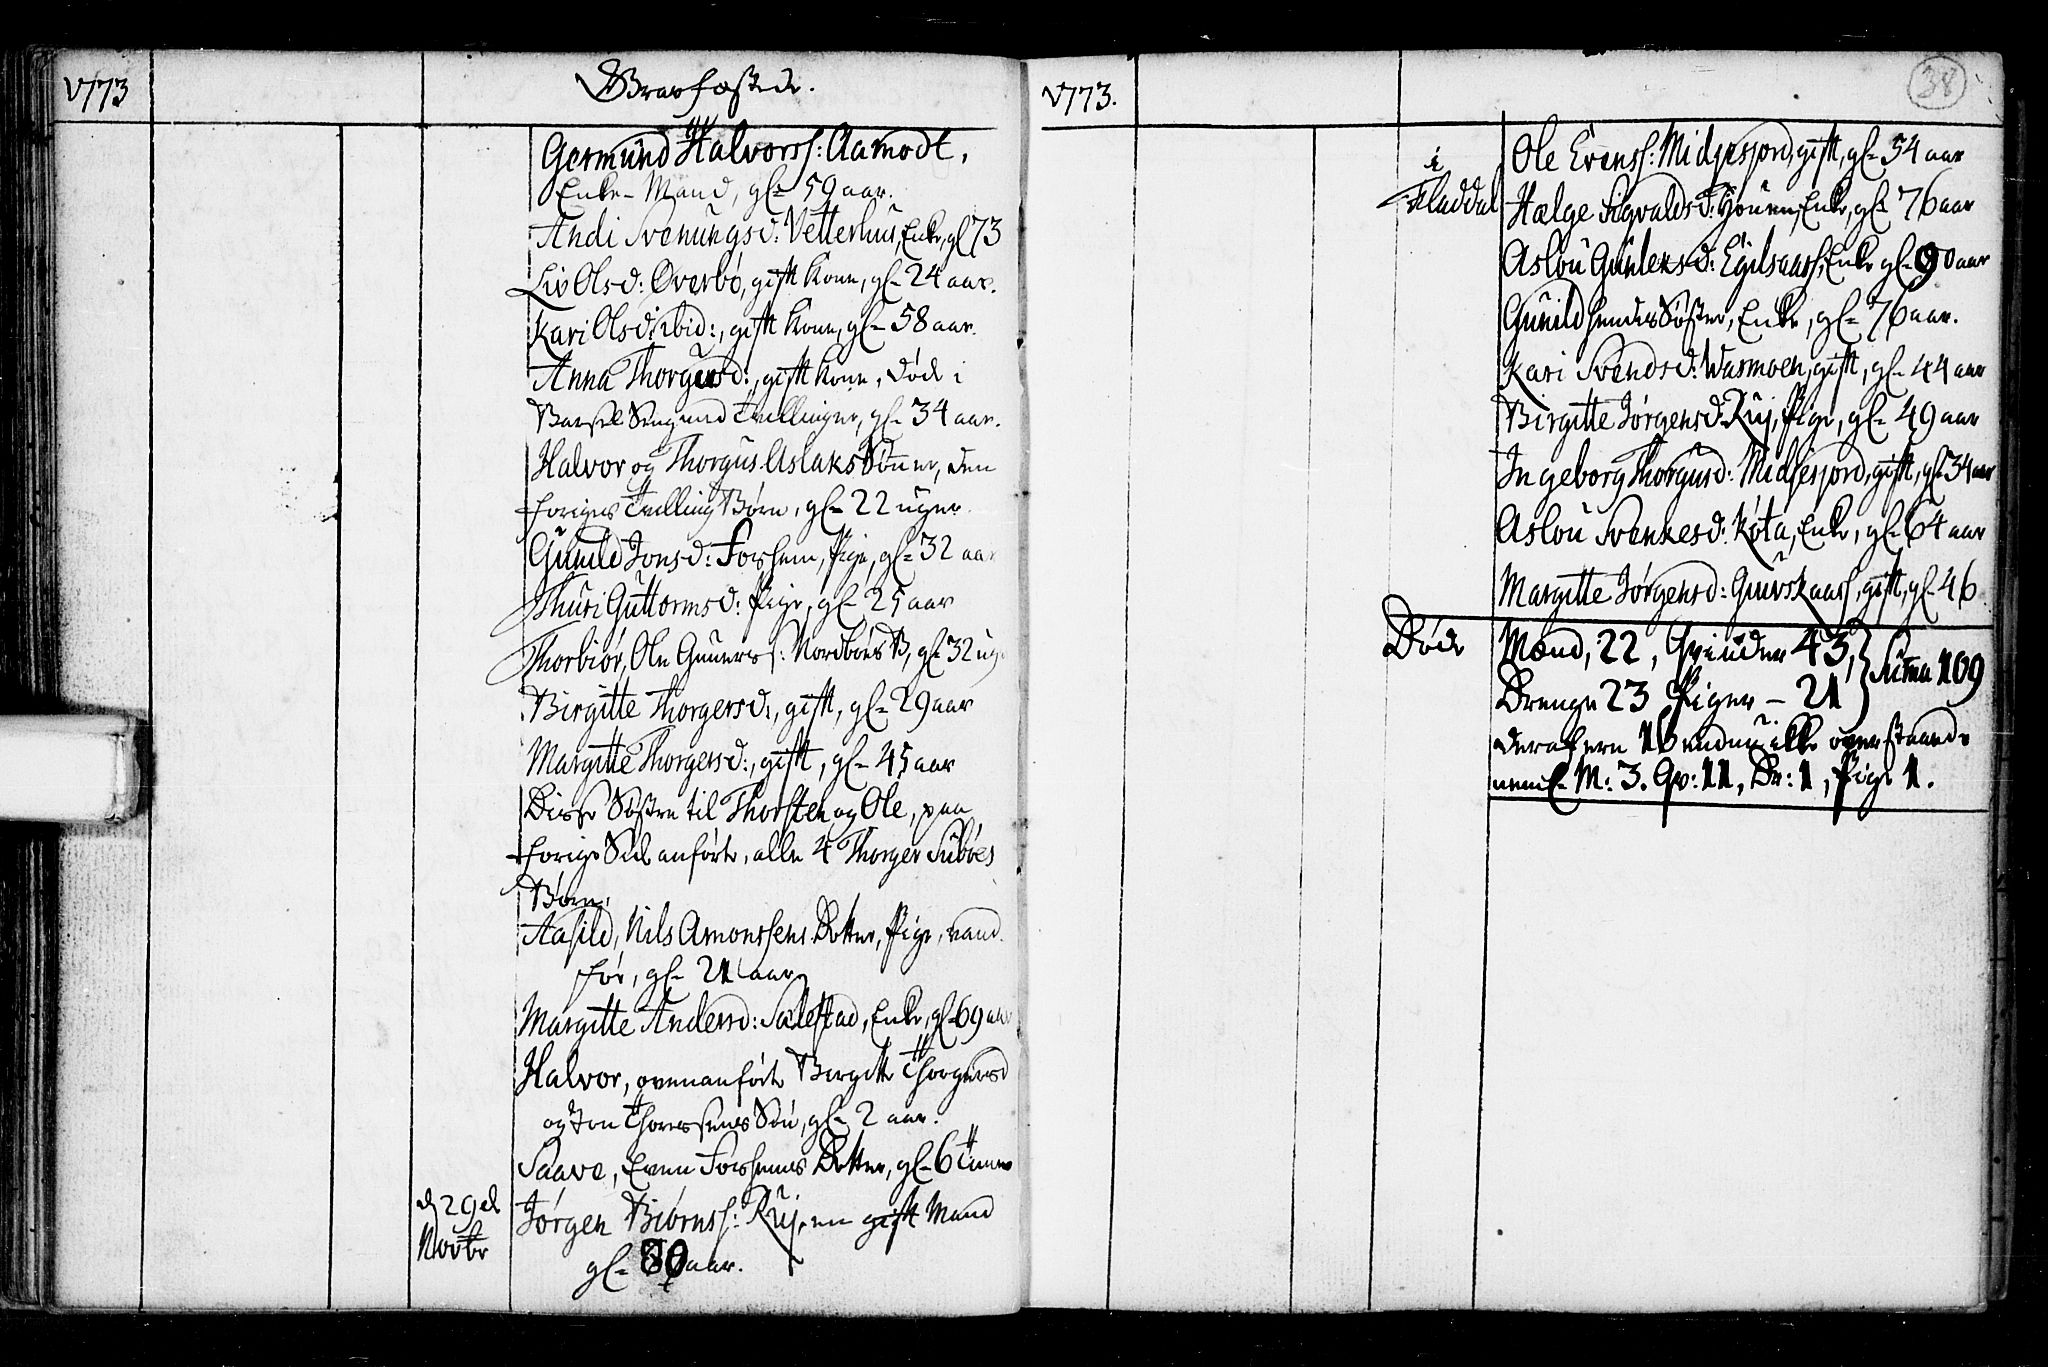 1773
Gravfæstede.
Germund Halvorss: Aamodt,
Enke-Mand, gl. 59 aar.
Andi Svenungsd: Vetterhus, Enke, gl 73
Liv Olsd: Överbö, gift Kone, gl. 24 aar.
Kari Olsd: ibid:, gift Kone, gl. 58 aar.
Anna Thorgersd:, gift Kone, död i
Barsel Seng med Tvillinger, gl. 34 aar.
Halvor og Thorgus Aslaks Sönner, den
foriges Tvilling Börn, gl. 22 uger.
Gunild Jonsd: Forshem, Pige, gl. 32 aar
Thuri Guttormsd: Pige, gl. 25 aar
Thorbiör, Ole Guners: Nordböes B, gl. 32 ug
Birgitte Thorgersd:, gift, gl. 29 aar
Margitte Thorgersd:, gift, gl. 45 aar
Disse Söstre til Thorsten og Ole, paa
forige Side anförte, alle 4 Thorger Suböes
Börn.
Aasild, Nils Amonssens Dotter, Pige, vand-
för, gl. 21 aar
Margitte Andersd: Salestad, Enke, gl. 69 aar
Halvor, ovenanförte Birgitte Thorgersd
og Jon Thoressens Sön, gl. 2 aar.
Saave, Even Forshems Dotter, gl. 6 Timer
d 29de
Novbr
Jörgen Biörnss: Ruj, en gift Mand
gl. 80 aar.
1773.
38
Ole Evenss: Midgesjord, gift, gl. 54 aar
i
Fladdal
Hælge Sigvaldsd: Höuen, Enke, gl. 76 aar
Aslou Gunleksd: Egilsaas, Enke gl. 90 aar
Gunild hendes Söster, Enke, gl. 76 aar.
Kari Svendsd: Warmoen, gift, gl. 44 aar
Birgitte Jörgensd: Ruj, Pige, gl. 49 aar
Ingeborg Thorgusd: Midgesjord, gift, gl. 34 aar
Aslou Svenkesd: Kóta, Enke, gl. 64 aar
Margitte Jörgensd: Guuskaas, gift, gl. 46
Döde
Mænd, 22, Qvinder 43, } Suma 109
Drenge 23 Piger - 21
deraf ere 16 endnu ikke ovenstaaende
neml. M: 3. Qv: 11, Dr: 1, Pige 1.